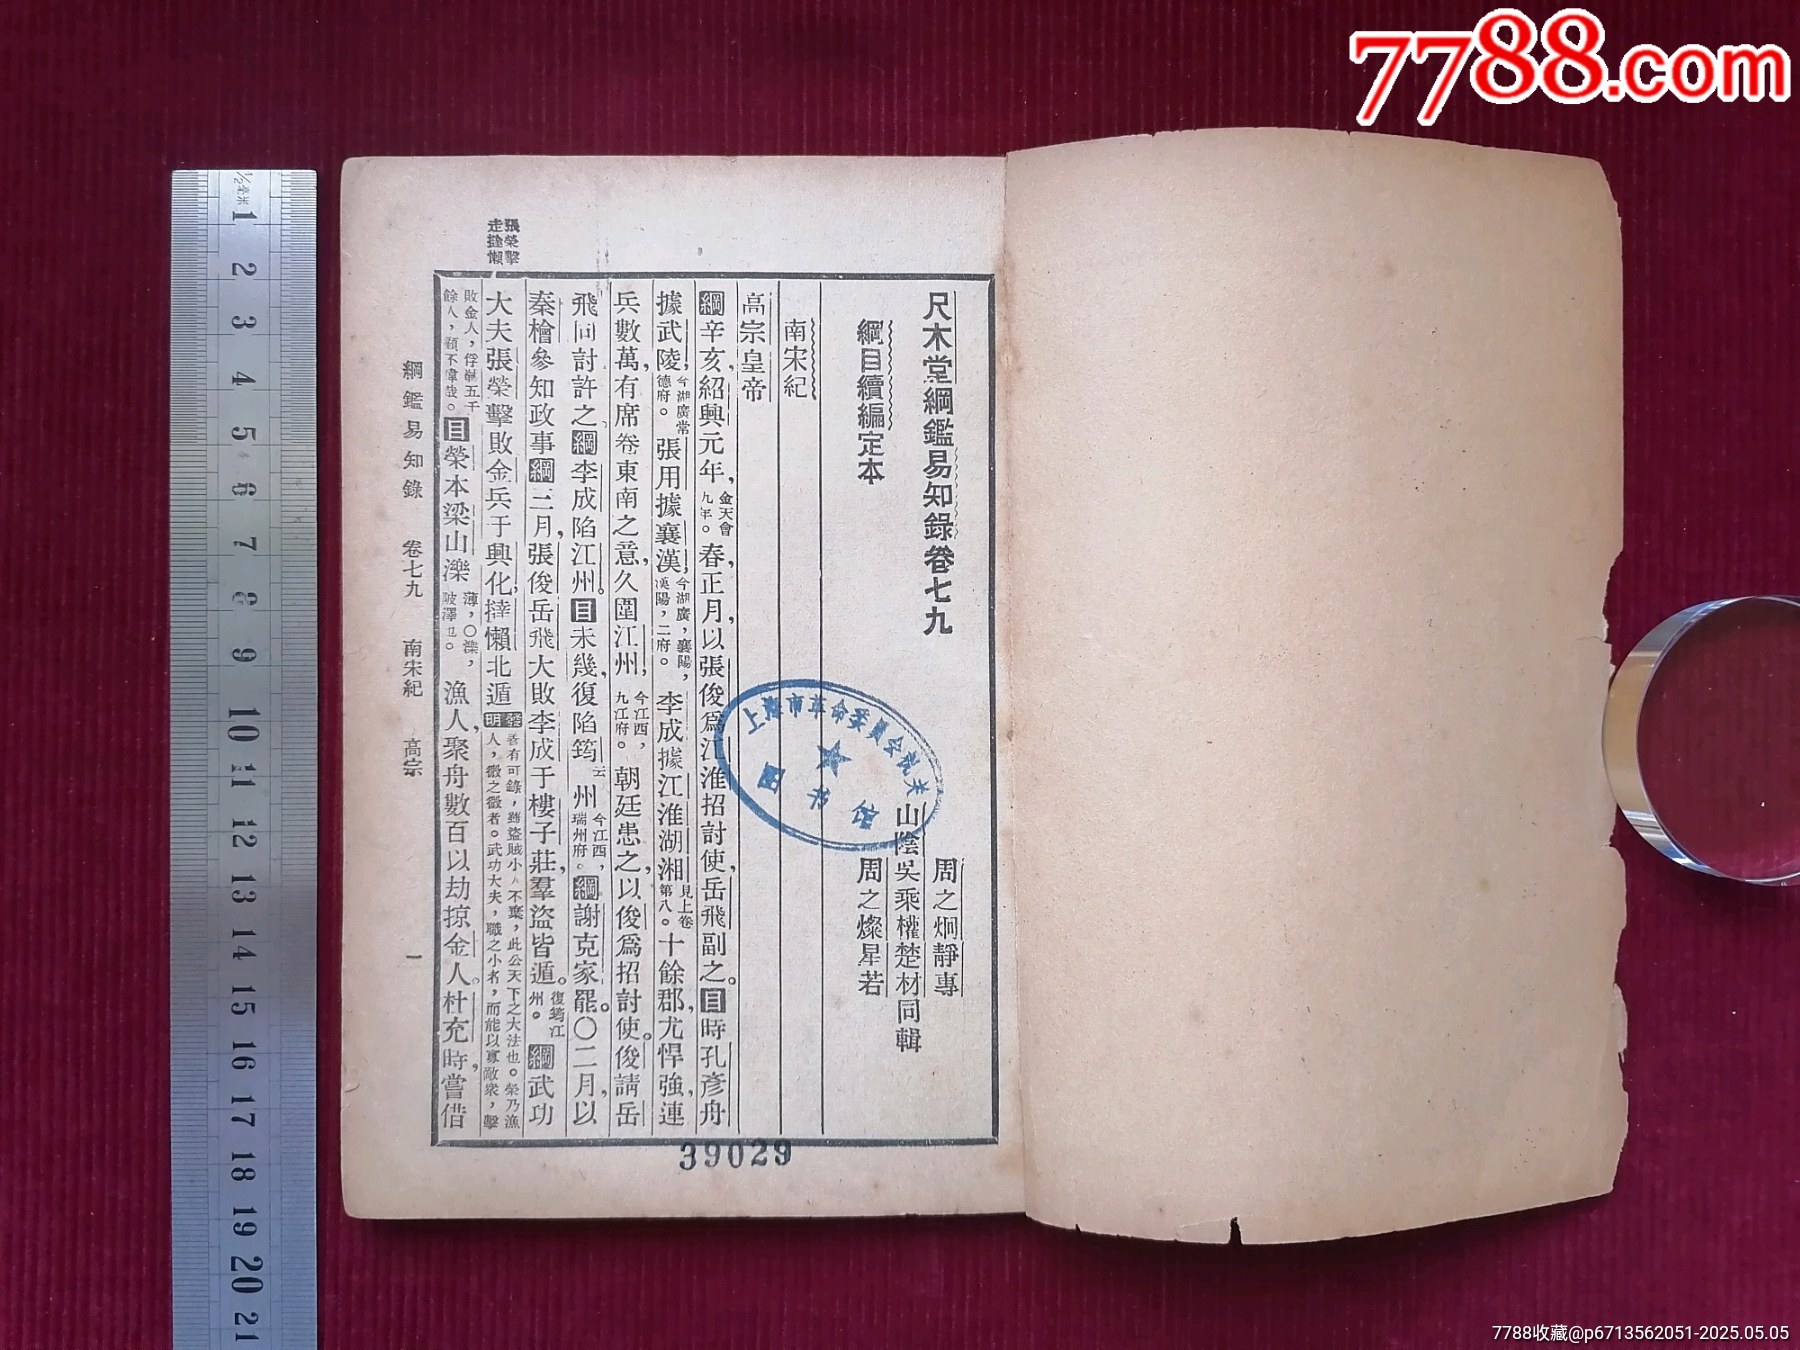 7788.com
尺木堂綱鑑易知錄卷七九
周之炯靜專
山陰吳乘權楚材同輯
綱目續編定本
周之燦星若
南宋紀
高宗皇帝
綱辛亥，紹興元年，金天會九年。春，正月，以張俊爲江淮招討使，岳飛副之。目時孔彥舟
據武陵，今湖廣常德府。張用據襄漢，今湖廣，襄陽，漢陽，二府。李成據江淮湖湘見上卷第八。十餘郡，尤悍強，連
兵數萬，有席卷東南之意，久圍江州，今江西，九江府。朝廷患之，以俊爲招討使。俊請岳
飛同討，許之。綱李成陷江州。目未幾，復陷筠云州。今江西，瑞州府。綱謝克家罷。〇二月，以
秦檜參知政事。綱三月，張俊岳飛大敗李成于樓子莊，羣盜皆遁。復筠江州。綱武功
大夫張榮擊敗金兵于興化，撻懶北遁。發明善有可錄，雖盜賊小人不棄，此公天下之大法也。榮乃漁人，微之微者。武功大夫，職之小者，而能以寡敵衆，擊
敗金人，俘馘五千餘人，顧不偉哉。目榮本梁山濼薄，〇濼，陂澤也。漁人，聚舟數百以劫掠金人。杜充時嘗借
張榮擊走撻懶
綱鑑易知錄 卷七九 南宋紀 高宗 一
上海市革命委員会机关
图书馆
39029
½毫米
1
2
3
4
5
6
7
8
9
10
11
12
13
14
15
16
17
18
19
20
21
7788收藏@p6713562051-2025.05.05